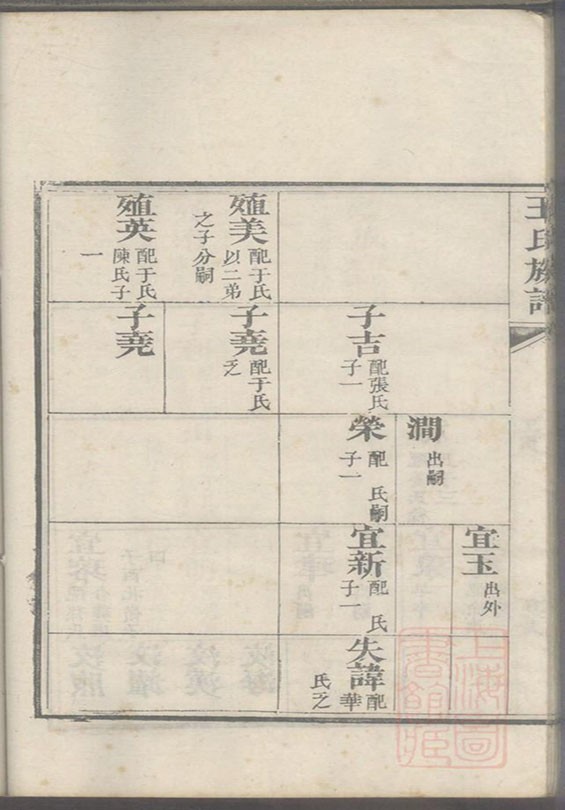 王氏族譜
殖美 配于氏
以二弟
之子分嗣
殖英 配于氏
陳氏子
一
子吉 配張氏
子一
子堯 配于氏
乏
子堯
澗 出嗣
榮 配 氏嗣
子一
宜玉 出外
宜新 配 氏
子一
失諱 配華
氏乏
上海圖書館藏